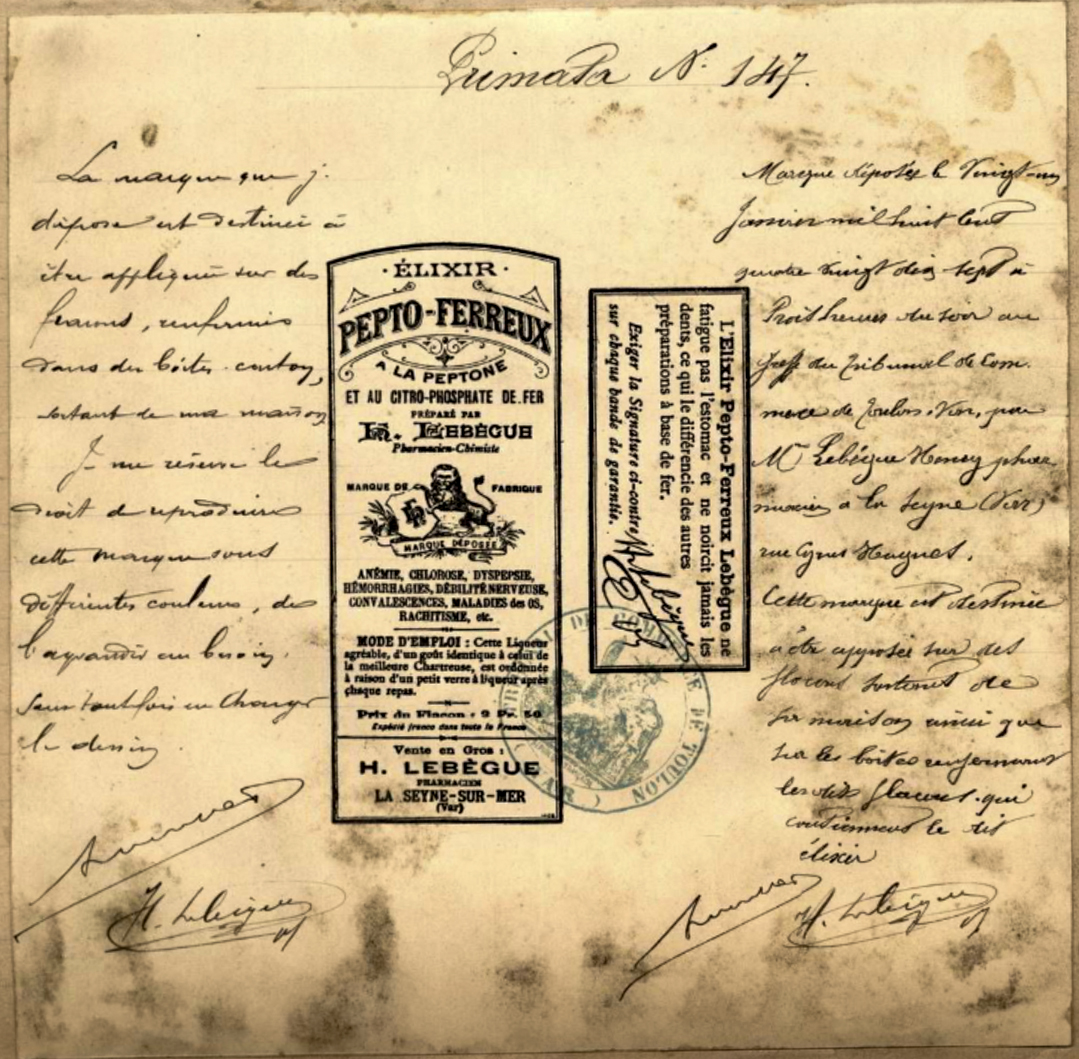 Primata N. 147.
La marque que je
dépose est destinée à
être appliquée sur des
flacons, renfermés
dans des boîtes carton,
sortant de ma maison
Je me réserve le
droit de reproduire
cette marque sous
différentes couleurs, de
l'agrandir au besoin,
sans toutefois en changer
le dessin.
H. Lebègue
· ÉLIXIR ·
PEPTO-FERREUX
A LA PEPTONE
ET AU CITRO-PHOSPHATE DE FER
PRÉPARÉ PAR
H. LEBÈGUE
Pharmacien-Chimiste
MARQUE DE FABRIQUE
MARQUE DÉPOSÉE
ANÉMIE, CHLOROSE, DYSPEPSIE,
HÉMORRHAGIES, DÉBILITÉ NERVEUSE,
CONVALESCENCES, MALADIES des OS,
RACHITISME, etc.
MODE D'EMPLOI : Cette Liqueur
agréable, d'un goût identique à celui de
la meilleure Chartreuse, est ordonnée
à raison d'un petit verre à liqueur après
chaque repas.
Prix du Flacon : 2 Fr. 50
Expédié franco dans toute la France
Vente en Gros :
H. LEBÈGUE
PHARMACIEN
LA SEYNE-SUR-MER
(Var)
L'Elixir Pepto-Ferreux Lebègue ne
fatigue pas l'estomac et ne noircit jamais les
dents, ce qui le différencie des autres
préparations à base de fer.
Exiger la Signature ci-contre
sur chaque bande de garantie.
H. Lebègue
TRIBUNAL DE COMMERCE DE TOULON
(VAR)
Marque déposée le Vingt-un
Janvier mil huit Cent
quatre vingt dix sept à
Trois heures du soir au
Greffe du Tribunal de Com-
merce de Toulon-Var, par
Mr Lebègue Henry phar
macien à la Seyne (Var)
rue Cyrus Hugues.
Cette marque est destinée
à être apposée sur des
flacons sortant de
sa maison ainsi que
sur les boîtes renfermant
les dits flacons qui
contiennent le dit
élixir
H. Lebègue